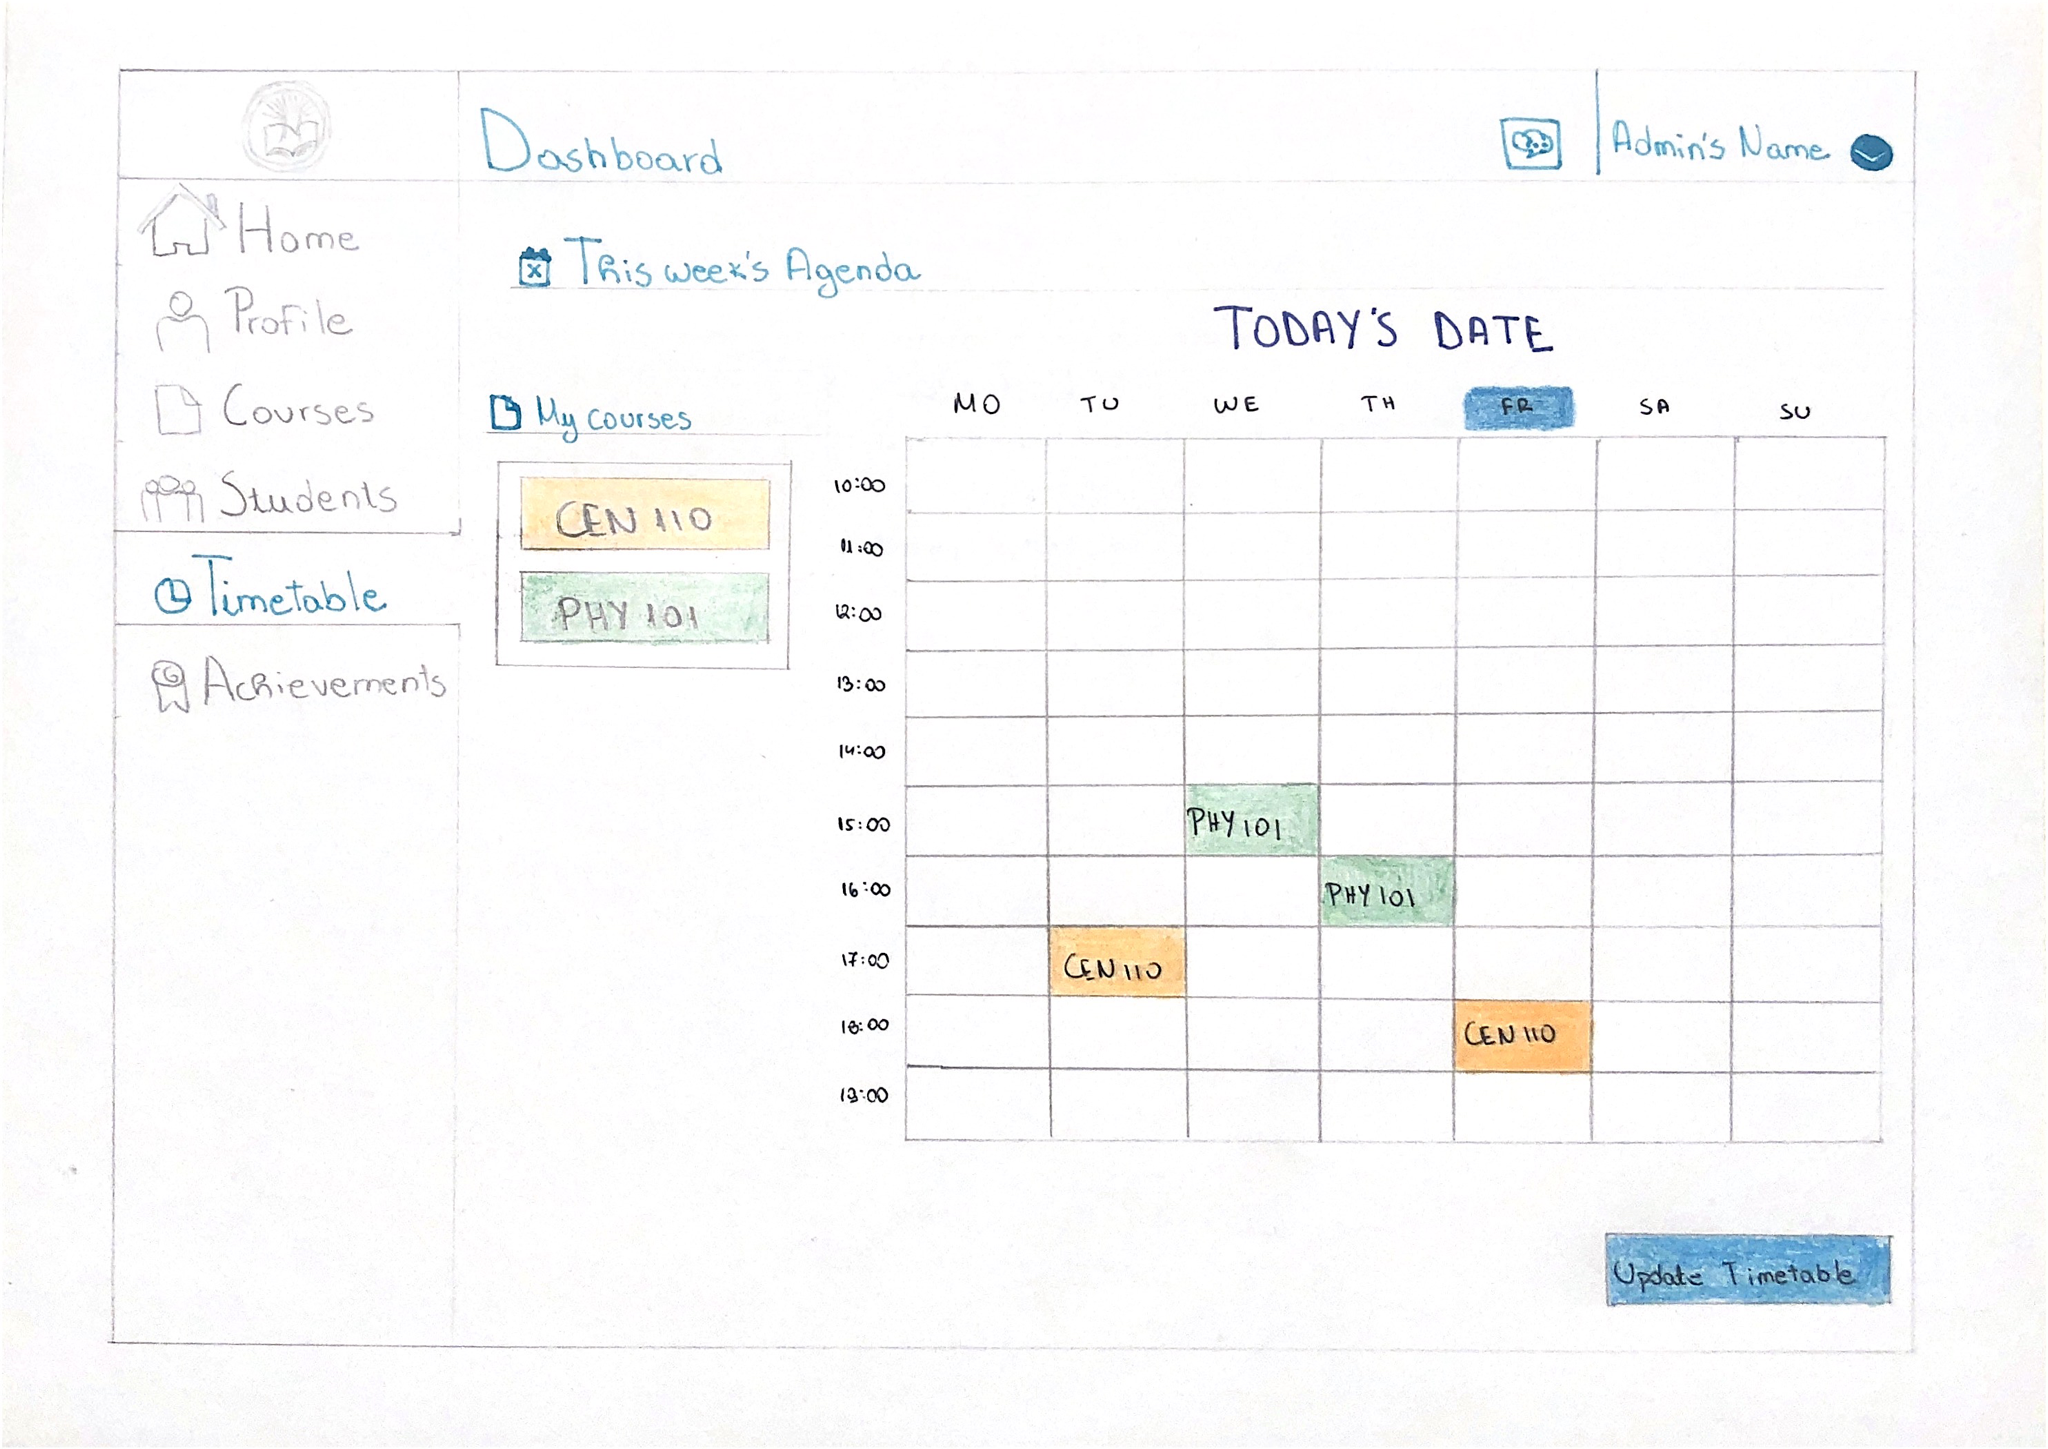 Dashboard
Admin's Name
Home
Profile
Courses
Students
Timetable
Achievements
This week's Agenda
TODAY'S DATE
My courses
CEN 110
PHY 101
MO TU WE TH FR SA SU
10:00
11:00
12:00
13:00
14:00
15:00 PHY 101
16:00 PHY 101
17:00 CEN 110
18:00 CEN 110
19:00
Update Timetable